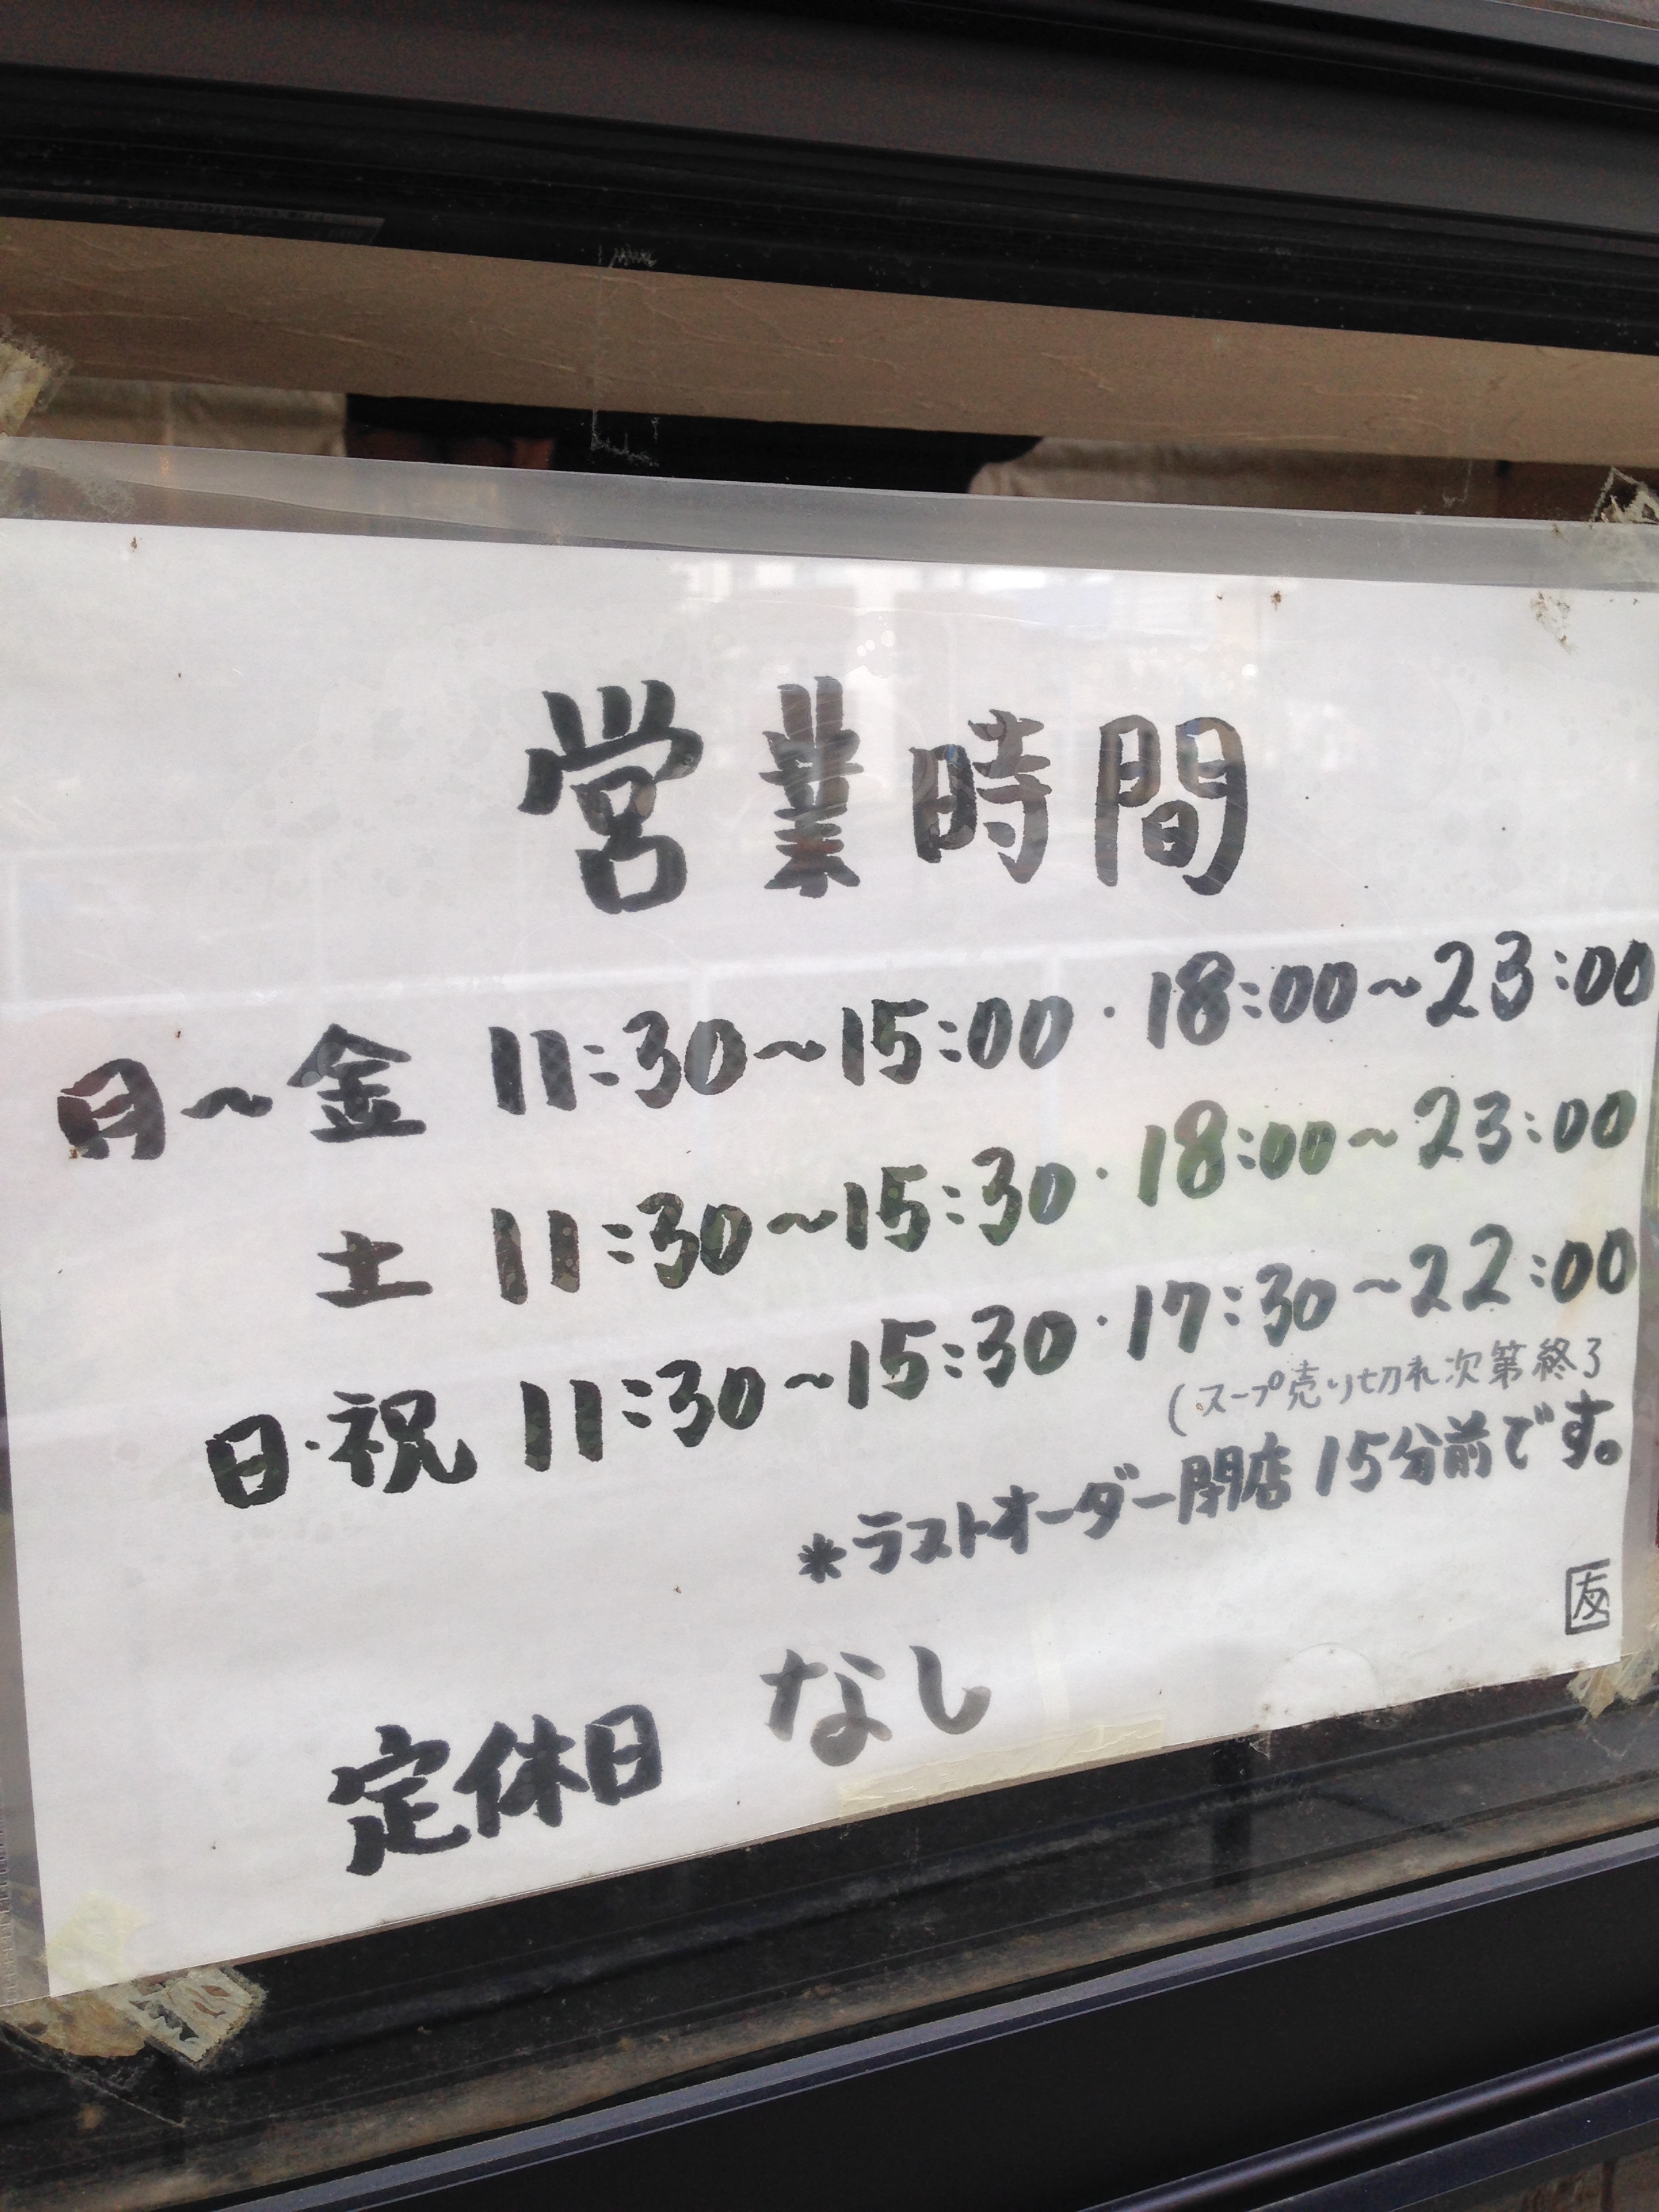 営業時間
月～金 11:30～15:00・18:00～23:00
土 11:30～15:30・18:00～23:00
日・祝 11:30～15:30・17:30～22:00
(スープ売り切れ次第終了
*ラストオーダー閉店15分前です。
友
定休日 なし